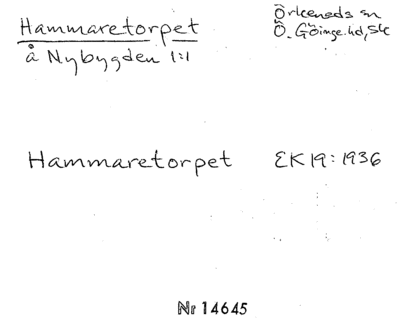 Hammaretorpet
å Nybygden 1:1
Örkeneds sn
Ö. Göinge hd, Sk
Hammaretorpet EK19:1936
Nr 14645